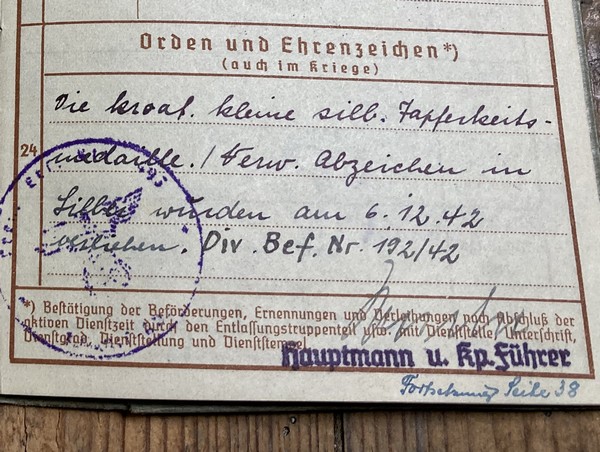 Orden und Ehrenzeichen*)
(auch im Kriege)
Die kroat. kleine silb. Tapferkeits-
24 medaille. / Verw. Abzeichen in
Silber wurden am 6.12.42
verliehen. Div. Bef. Nr. 192/42
*) Bestätigung der Beförderungen, Ernennungen und Verleihungen nach Abschluß der
aktiven Dienstzeit durch den Entlassungstruppenteil usw. mit Dienststelle, Unterschrift,
Dienstgrad, Dienststellung und Dienststempel.
Hauptmann u. Kp. Führer
Fortsetzung Seite 38